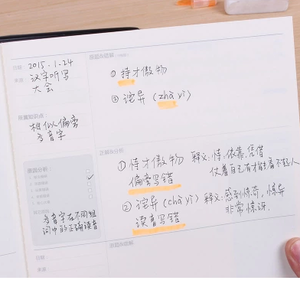 2015.1.24
汉字听写
大会
相似偏旁
多音字
多音字在不同组
词中的正确读音
① 持才傲物
② 诧异(zhà yì)
① 恃才傲物 释义:恃,依靠,凭借
仗着自己有才能看不起人
偏旁写错
② 诧异(chà yì) 释义:感到惊奇,惊异
非常惊讶
读音写错